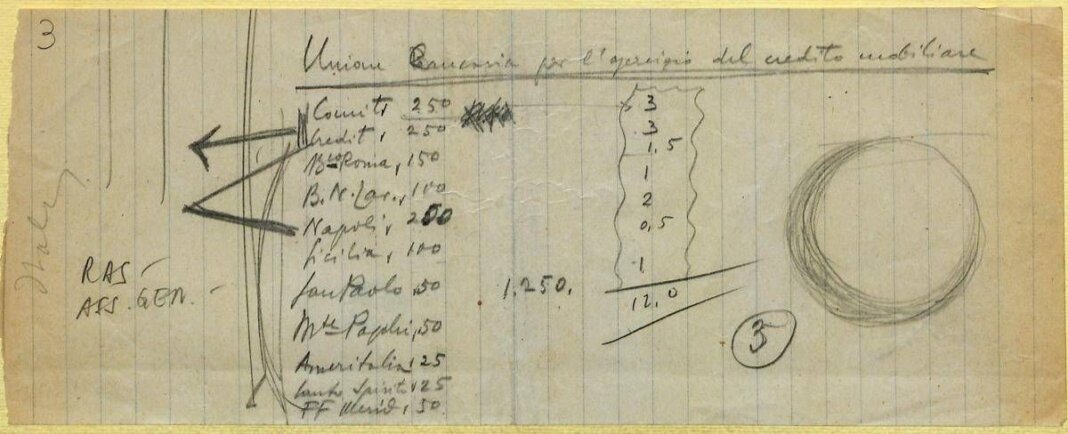 3
Unione Bancaria per l'esercizio del credito mobiliare
Comit, 250 3
Credit, 250 3
Bco Roma, 150 1,5
B.N.Lav., 100 1
Napoli, 200 2
Sicilia, 100 0,5
San Paolo, 50 1.250. 1
12,0
Mte Paschi, 50
Ameritalia, 25
Santo Spirito, 25
FF Merid, 50
RAS -
ASS. GEN. -
5